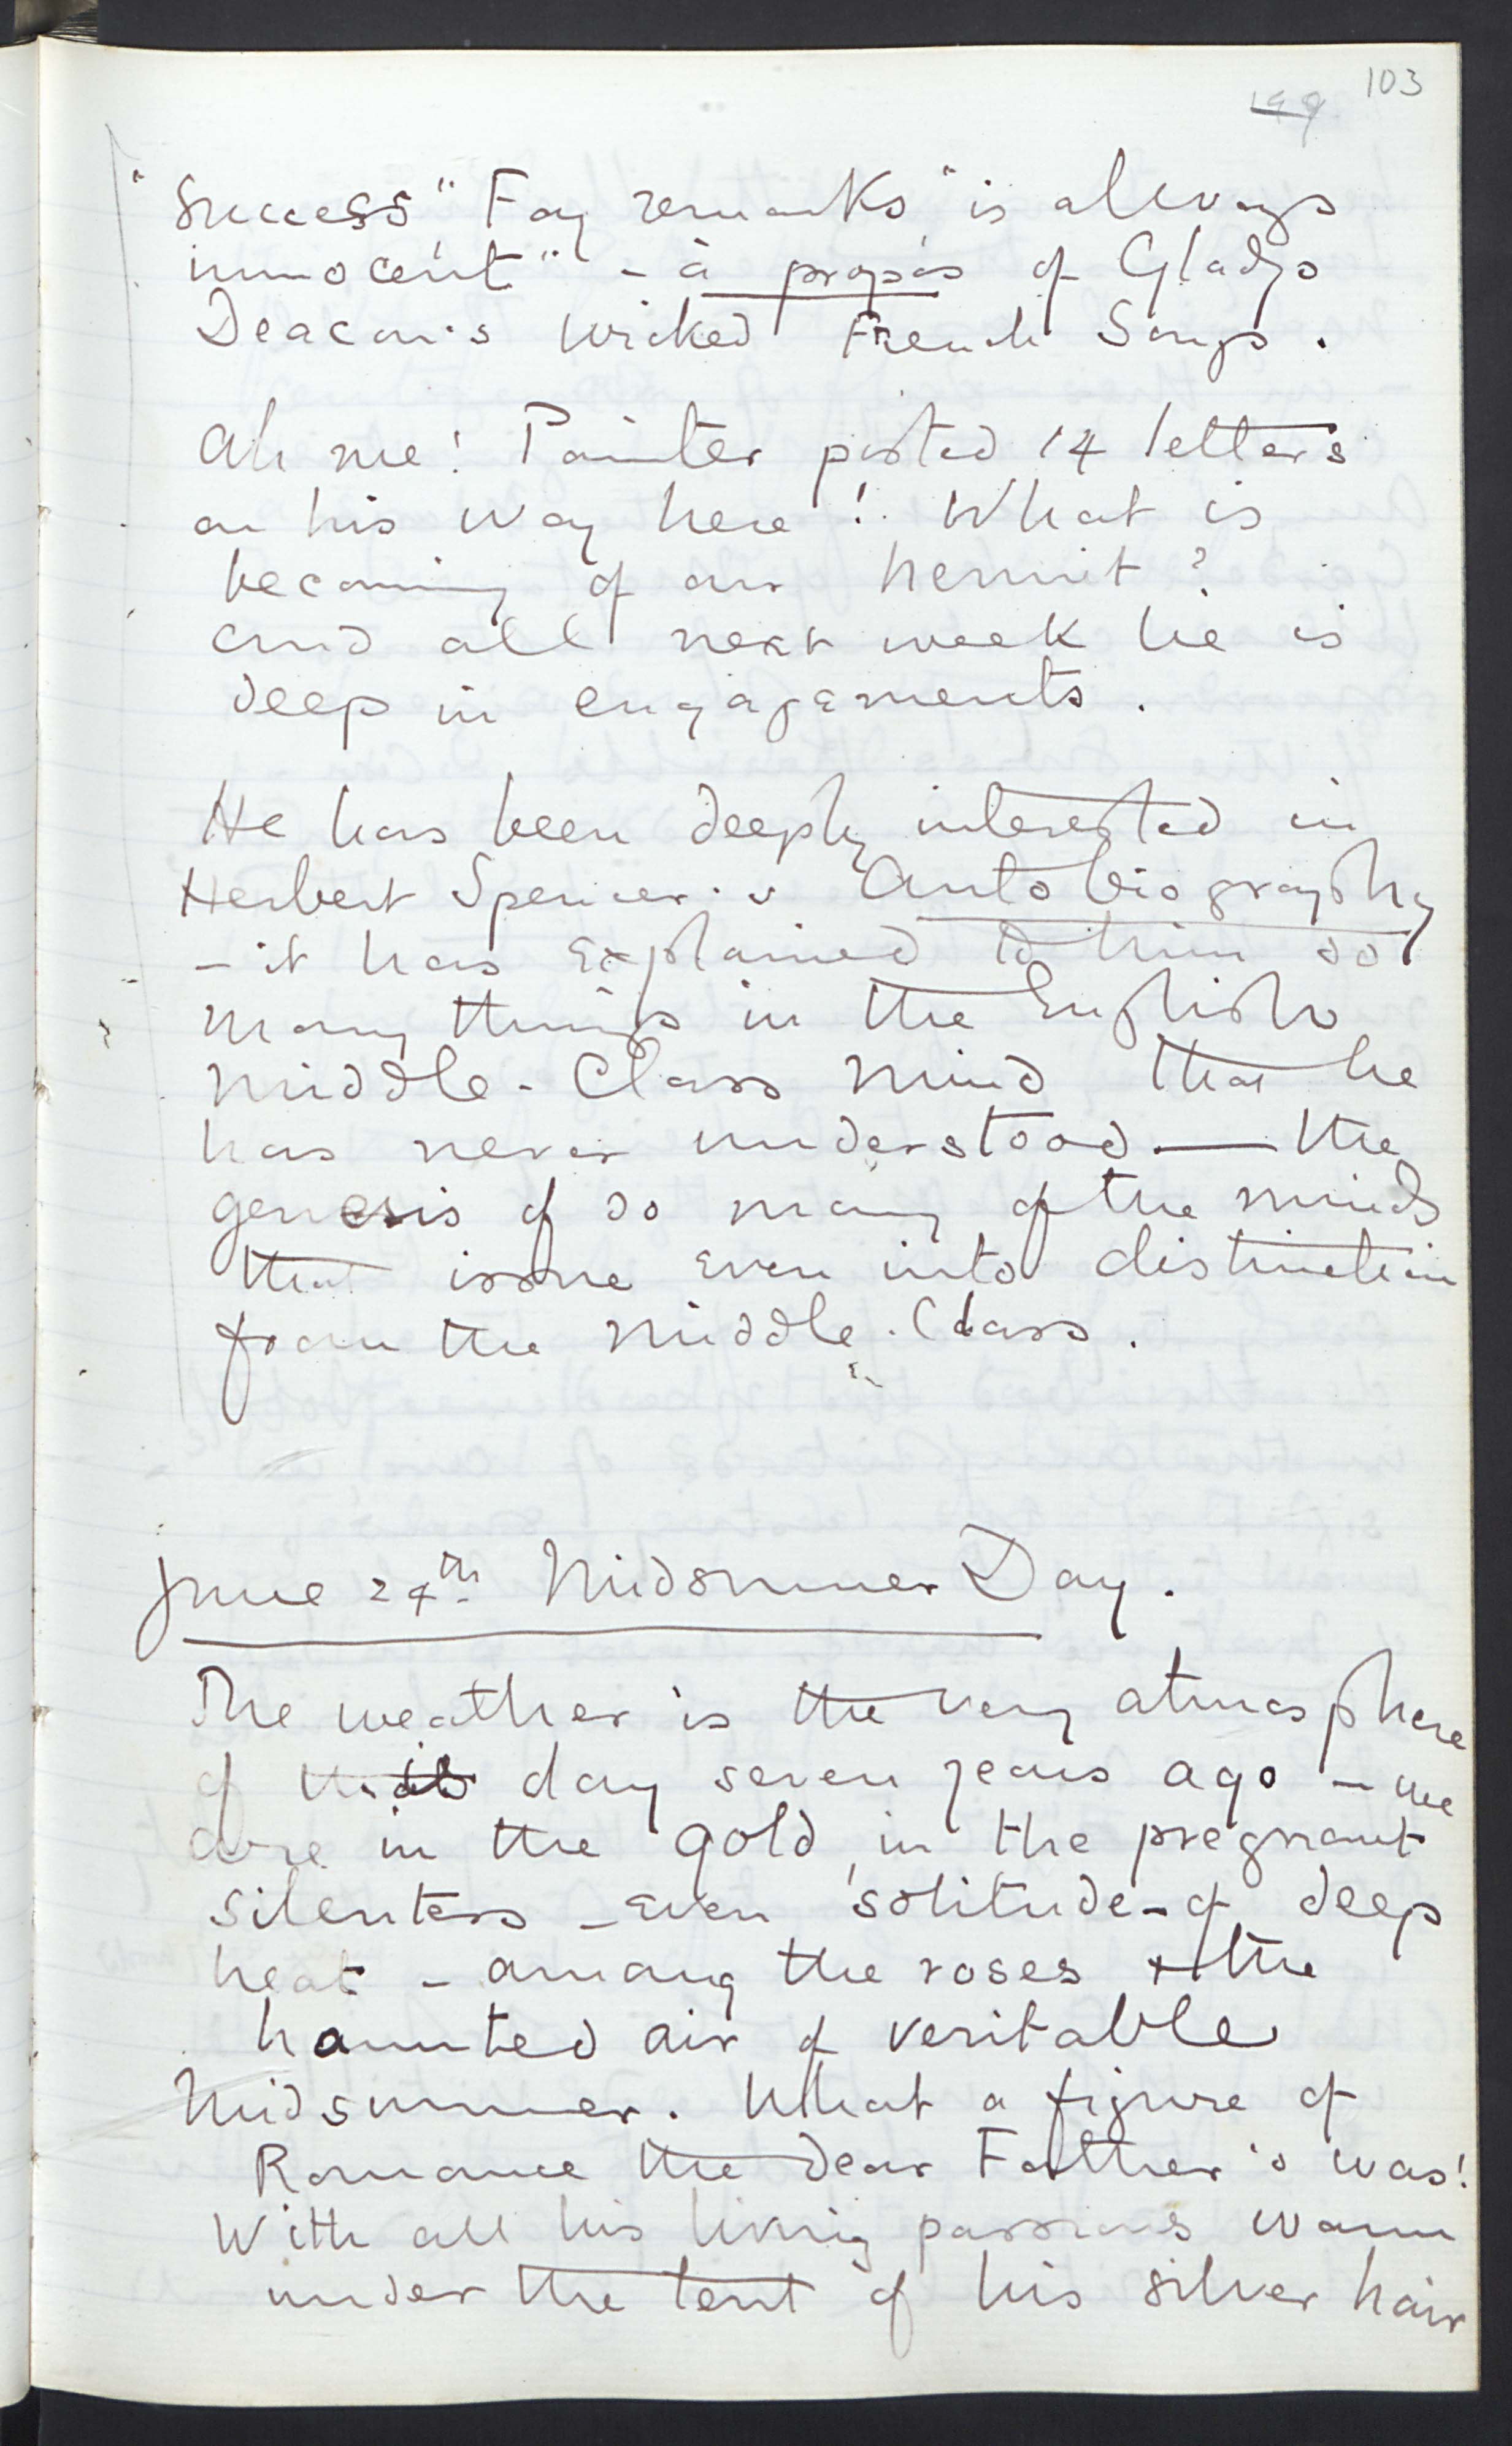 103
199
"Success" Fay remarks "is always
innocent" - à propos of Gladys
Deacon's wicked French Songs.
Ah me! Painter posted 14 letters
on his way here! What is
becoming of our hermit?
and all next week he is
deep in engagements.
He has been deeply interested in
Herbert Spencer's Autobiography
- it has explained to him so
many things in the English
Middle-Class mind that he
has never understood — the
genesis of so many of the minds
that issue even into distinction
from the Middle-Class.
June 24th Midsummer Day.
The weather is the very atmosphere
of this day seven years ago - we
are in the gold, in the pregnant
silentess - even solitude - of deep
heat - among the roses + the
haunted air of veritable
Midsummer. What a figure of
Romance the dear Father's was!
With all his living passions warm
under the tent of his silver hair